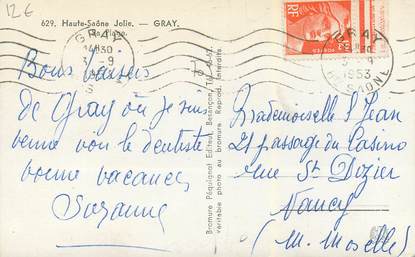 12 €
629. Haute-Saône Jolie. — GRAY.
La Plage.
GRAY
30
3 - 9
GRAY
30
3 - 9
1953
HTE SAONE
RF
POSTES
Bons baisers
de Gray où je suis
venue voir le dentiste
bonne vacances
Suzanne
Bromure Péquignot Editeur, Besançon, Tél.
véritable photo au bromure Reprod. Interdite
Mademoiselle S Jean
21 passage du Casino
rue St Dizier
Nancy
(M. Moselle)